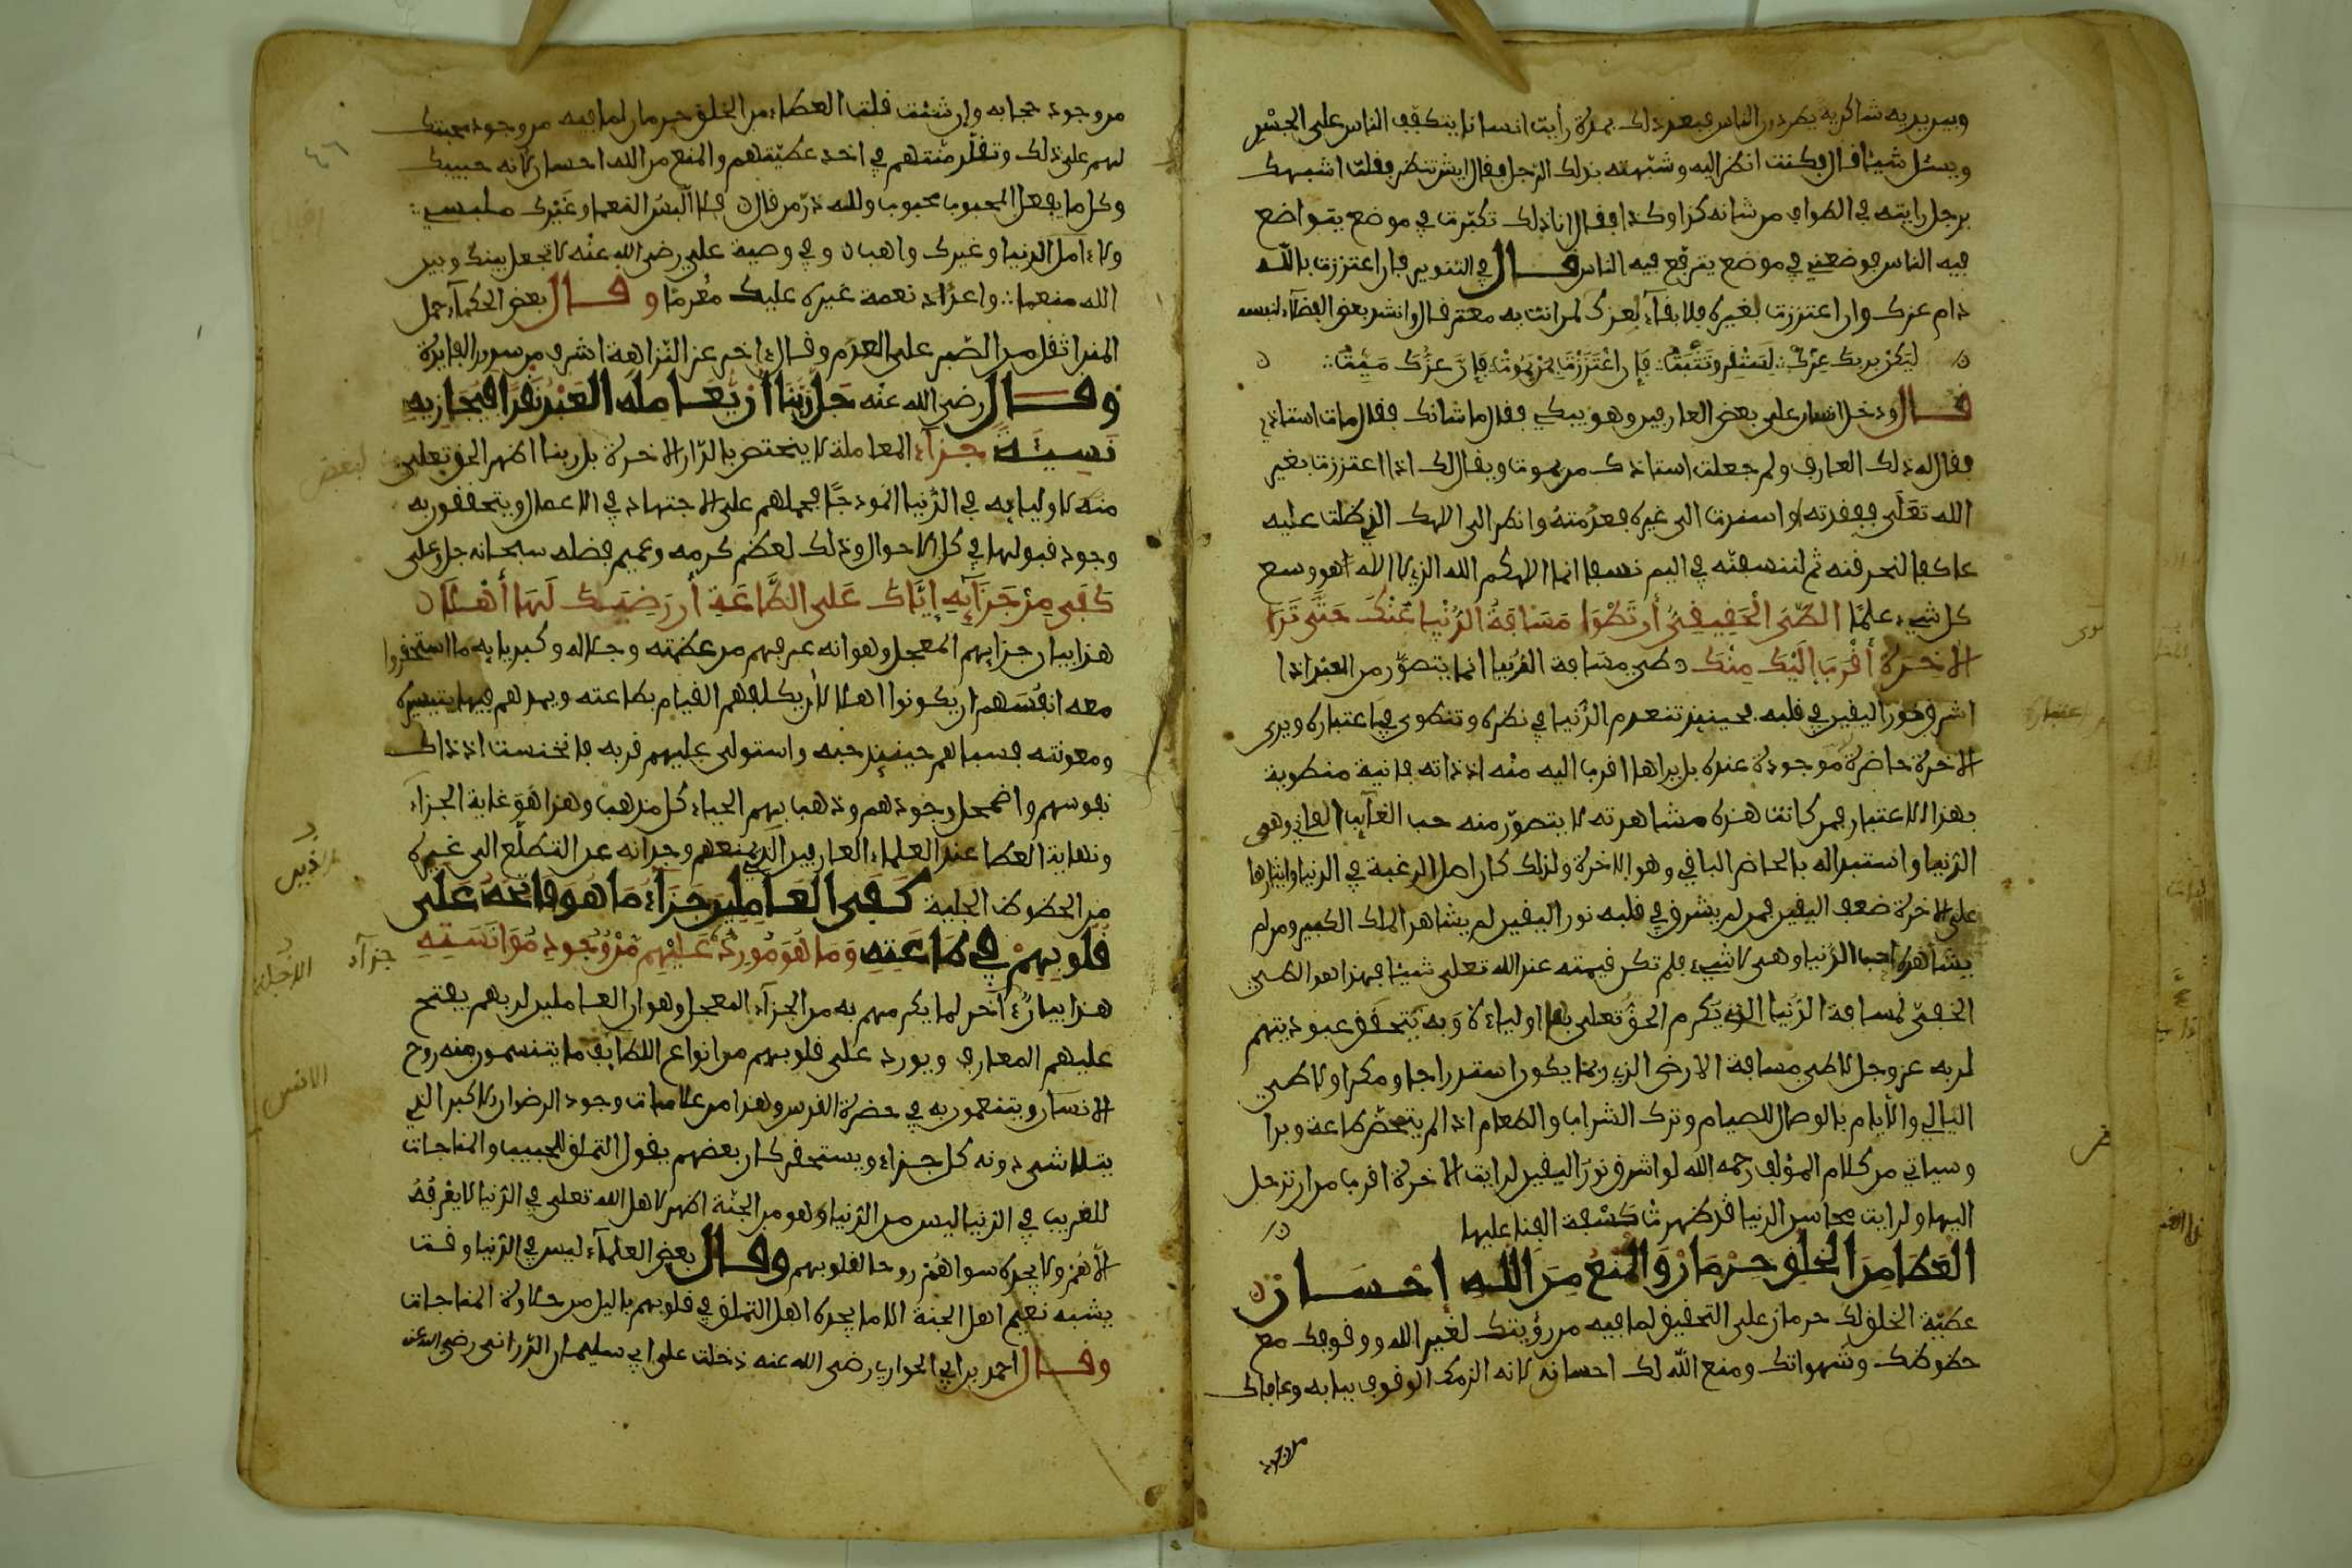 وبين يديه شاكرية يطردون الناس فبعد ذلك بمدة رأيت انسانا يتكفف الناس على الجسر
ويسئل شيئا قال فكنت انظر اليه وشبهته بذلك الرجل فقال ايش تنظر فقلت اشبهك
برجل رايته في الطواف من شانه كذا وكذا فقال انا ذلك تكبرت في موضع يتواضع
فيه الناس فوضعني في موضع يترفع فيه الناس قال في التنوير فان اعتززت بالله
دام عزك وان اعتززت بغيره فلا بقاء لعزك لمن انت به معتز قال وانشد بعض الفضلاء لنفسه
ليكن بربك عزك تستقر وتثبت فإن اعتززت بمن يموت فإن عزك ميت
قال ودخل انسان على بعض العارفين وهو يبكي فقال ما شانك فقال مات استاذي
فقال له ذلك العارف ولم جعلت استاذك من يموت ويقال لك اذا اعتززت بغير
الله تعلى ففقدته او استندت الى غيره فعدمته وانظر الى الاهك الذي ظلت عليه
عاكفا لنحرقنه ثم لننسفنه في اليم نسفا انما الاهكم الله الذي لا اله الا هو وسع
كل شيء علما الطي الحقيقي أن تطوا مسافة الدنيا عنك حتى ترا
الاخرة أقرب إليك منك طي مسافة الدنيا انما يتصور من العبد اذا
اشرق نور اليقين في قلبه فحينئذ تنعدم الدنيا في نظره وتنطوي في اعتباره ويرى
الاخرة حاضرة موجودة عنده بل يراها اقرب اليه منه اذ ذاته فانية منطوية
بهذا الاعتبار فمن كانت هذه مشاهرته لا يتصور منه حب الغآيب الفاني وهي
الدنيا واستبداله بالحاضر الباقي وهو الاخرة ولذلك كان اصل الرغبة في الدنيا وايثارها
على الاخرة ضعف اليقين فمن لم يشرق في قلبه نور اليقين لم يشاهد الملك الكبير ومن لم
يشاهده احب الدنيا وهي لا شيء فلم تكن قيمته عند الله تعلى شيئا فهذا هو الطي
الحقيقي لمسافة الدنيا الذي يكرم الحق تعلى به اولياءه وبه يتحقق عبوديتهم
لربه عز وجل لا طي مسافة الارض الذي ربما يكون استدراجا ومكرا ولا طي
اليالي والايام بالوصال للصيام وترك الشراب والطعام اذا لم يتمحض طاعة وبرا
وسياتي من كلام المؤلف رحمه الله لو اشرق نور اليقين لرايت الاخرة اقرب من ان ترحل
اليها ولرايت محاسن الدنيا قد ظهرت كسفة الفنا عليها
العطا من الخلق حرمان والمنع من الله إحسان
عطية الخلق لك حرمان على التحقيق لما فيه من رؤيتك لغير الله ووقوفك مع
حظوظك وشهواتك ومنع الله لك احسان لانه الزمك الوقوف ببابه وعافاك
من وجود
من وجود حجابه وإن شئت قلت العطاء من الخلق حرمان لما فيه من وجود محبتك
لهم على ذلك وتقلد منتهم في اخذ عطيتهم والمنع من الله احسان لانه حبيبك
وكل ما يفعل المحبوب محبوب ولله در من قال فلا ألبس النعما وغيرك ملبسي
ولا ءامل الدنيا وغيرك واهبا وفي وصية علي رضي الله عنه لا تجعل بينك وبين
الله منعما واعدد نعمة غيره عليك مغرما وقال بعض الحكمآء حمل
المنن اثقل من الصبر على العدم وقال ءاخر عز النزاهة اشرف من سرور الفايدة
وقال رضي الله عنه جل ربنا أن يعامله العبد نقدا فيجازيه
نسيئة جزآء المعاملة لا يختص بالدار الاخرة بل ربما اظهر الحق تعلى
منه لاوليايه في الدنيا انموذجا فيحملهم على الاجتهاد في الاعمال ويتحققون به
وجود قبولها في كل الاحوال وذلك لعظم كرمه وعميم فضله سبحانه جل وعلى
كفى من جزآيه إياك على الطاعة أن رضيك لها أهلا
هذا بيان جزايهم المعجل وهو انه عرفهم من عظمته وجلاله وكبريايه ما استحقروا
معه انفسهم ان يكونوا اهلا لأن يكلفهم القيام بطاعته ويمدهم فيها بتيسيره
ومعونته فسباهم حينئذ حبه واستولى عليهم قربه فانخنست اذ ذاك
نفوسهم واضمحل وجودهم وذهب بهم الحياء كل مذهب وهذا هو غاية الجزآء
ونهاية العطا عند العلماء العارفين الذي منعهم وجدانه عن التطلع الى غيره
من الحظوظ الجلية كفى العاملين جزآء ما هو فاتحه على
قلوبهم في طاعته وما هو مورد عليهم من وجود مؤانسته
هذا بيان ءاخر لما يكرمهم به من الجزآء المعجل وهو ان العاملين لربهم يفتح
عليهم المعارف ويورد على قلوبهم من انواع اللطايف ما يتنسمون منه روح
الانس ويتنعمون به في حضرة القدس وهذا من علامات وجود الرضوان الاكبر الذي
يتلاشى دونه كل جزاء ويستحقر كان بعضهم يقول التملق للحبيب والمناجات
للقريب في الدنيا ليس من الدنيا وهو من الجنة اظهر لاهل الله تعلى في الدنيا لا يعرفه
الا هم ولا يجده سواهم روحا لقلوبهم وقال بعض العلمآء ليس في الدنيا وقت
يشبه نعيم اهل الجنة الا ما يجده اهل التملق في قلوبهم باليل من حلاوة المناجات
وقال احمد بن ابي الحواري رضي الله عنه دخلت على ابي سليمان الدراني رضي الله عنه